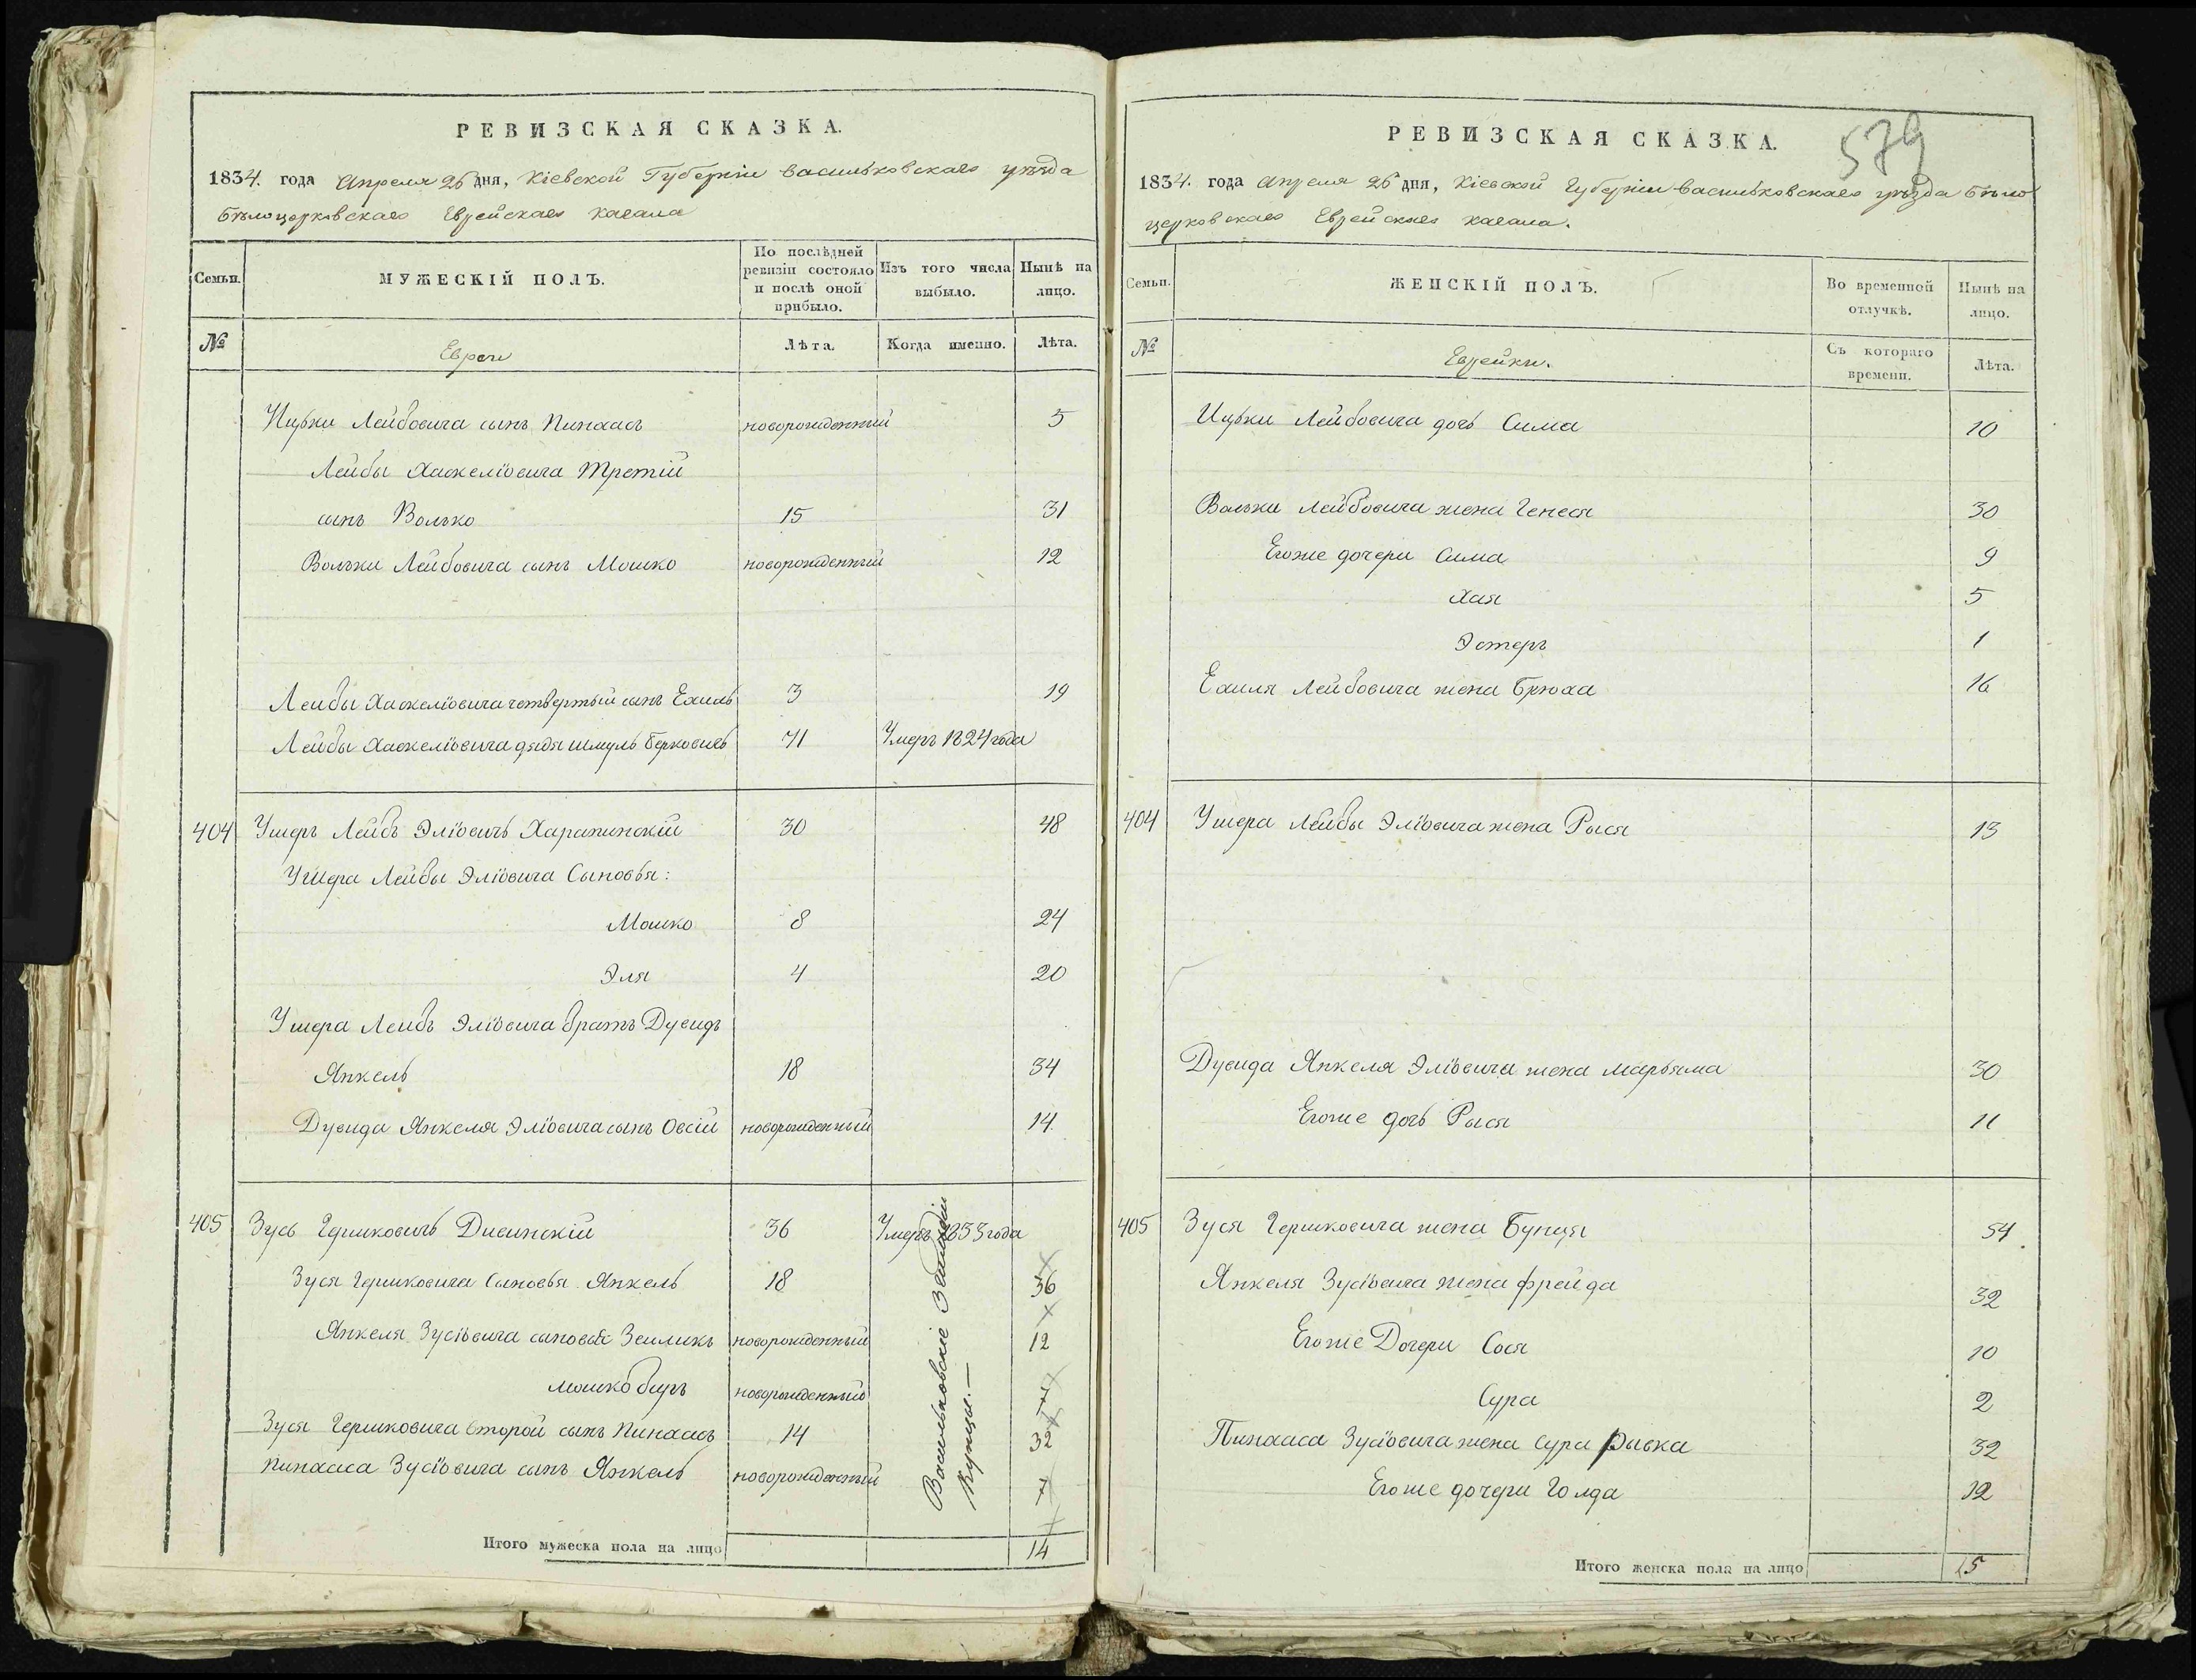 РЕВИЗСКАЯ СКАЗКА.
1834. года Апреля 25 дня, Кіевской Губерніи Васильковскаго уѣзда
Бѣлоцерковскаго Еврейскаго кагала
Семьи.
МУЖЕСКІЙ ПОЛЪ.
По послѣдней ревизіи состояло и послѣ оной прибыло.
Изъ того числа выбыло.
Нынѣ на лицо.
№
Евреи
Лѣта.
Когда именно.
Лѣта.
Ицьки Лейбовича сынъ Пинхасъ новорожденный 5
Лейбы Хаскеліовича Третій
сынъ Волько 15 31
Вольки Лейбовича сынъ Мошко новорожденный 12
Лейбы Хаскеліовича четвертый сынъ Ехиль 3 19
Лейбы Хаскеліовича дядя Шмуль Берковичъ 71 Умеръ 1824 года
404 Ушеръ Лейбъ Эліовичъ 30 48
Ушера Лейбы Эліовича Сыновья:
Мошко 8 24
Эля 4 20
Ушера Лейбъ Эліовича братъ Дувидъ
Янкель 18 34
Дувида Янкеля Эліовича сынъ Овсій новорожденный 14
405 Зусь Гершковичъ Дисинскій 36 Умеръ 1833 года
Зуся Гершковича Сыновья Янкель 18 36
Янкеля Зусіовича сыновья Зейликъ новорожденный 12
Мошко Биръ новорожденный 7
Зуся Гершковича второй сынъ Пинхасъ 14 32
Пинхаса Зусіовича сынъ Янкель новорожденный 7
Васильковскіе
Купцы.—
Итого мужеска пола на лицо 14
579
РЕВИЗСКАЯ СКАЗКА.
1834. года Апреля 25 дня, Кіевской Губерніи Васильковскаго уѣзда Бѣло
церковскаго Еврейскаго кагала.
Семьи.
ЖЕНСКІЙ ПОЛЪ.
Во временной отлучкѣ.
Нынѣ на лицо.
№
Еврейки.
Съ котораго времени.
Лѣта.
Ицьки Лейбовича дочь Сима 10
Вольки Лейбовича жена Генеся 30
Егоже дочери Сима 9
Хая 5
Эстеръ 1
Ехиля Лейбовича жена Брюха 16
404 Ушера Лейбы Эліовича жена Рыся 13
Дувида Янкеля Эліовича жена Марьяма 30
Егоже дочь Рыся 11
405 Зуся Гершковича жена Бунця 54
Янкеля Зусіовича жена Фрейда 32
Егоже Дочери Сося 10
Сура 2
Пинхаса Зусіовича жена Сура Рывка 32
Егоже дочери Голда 12
Итого женска пола на лицо 15